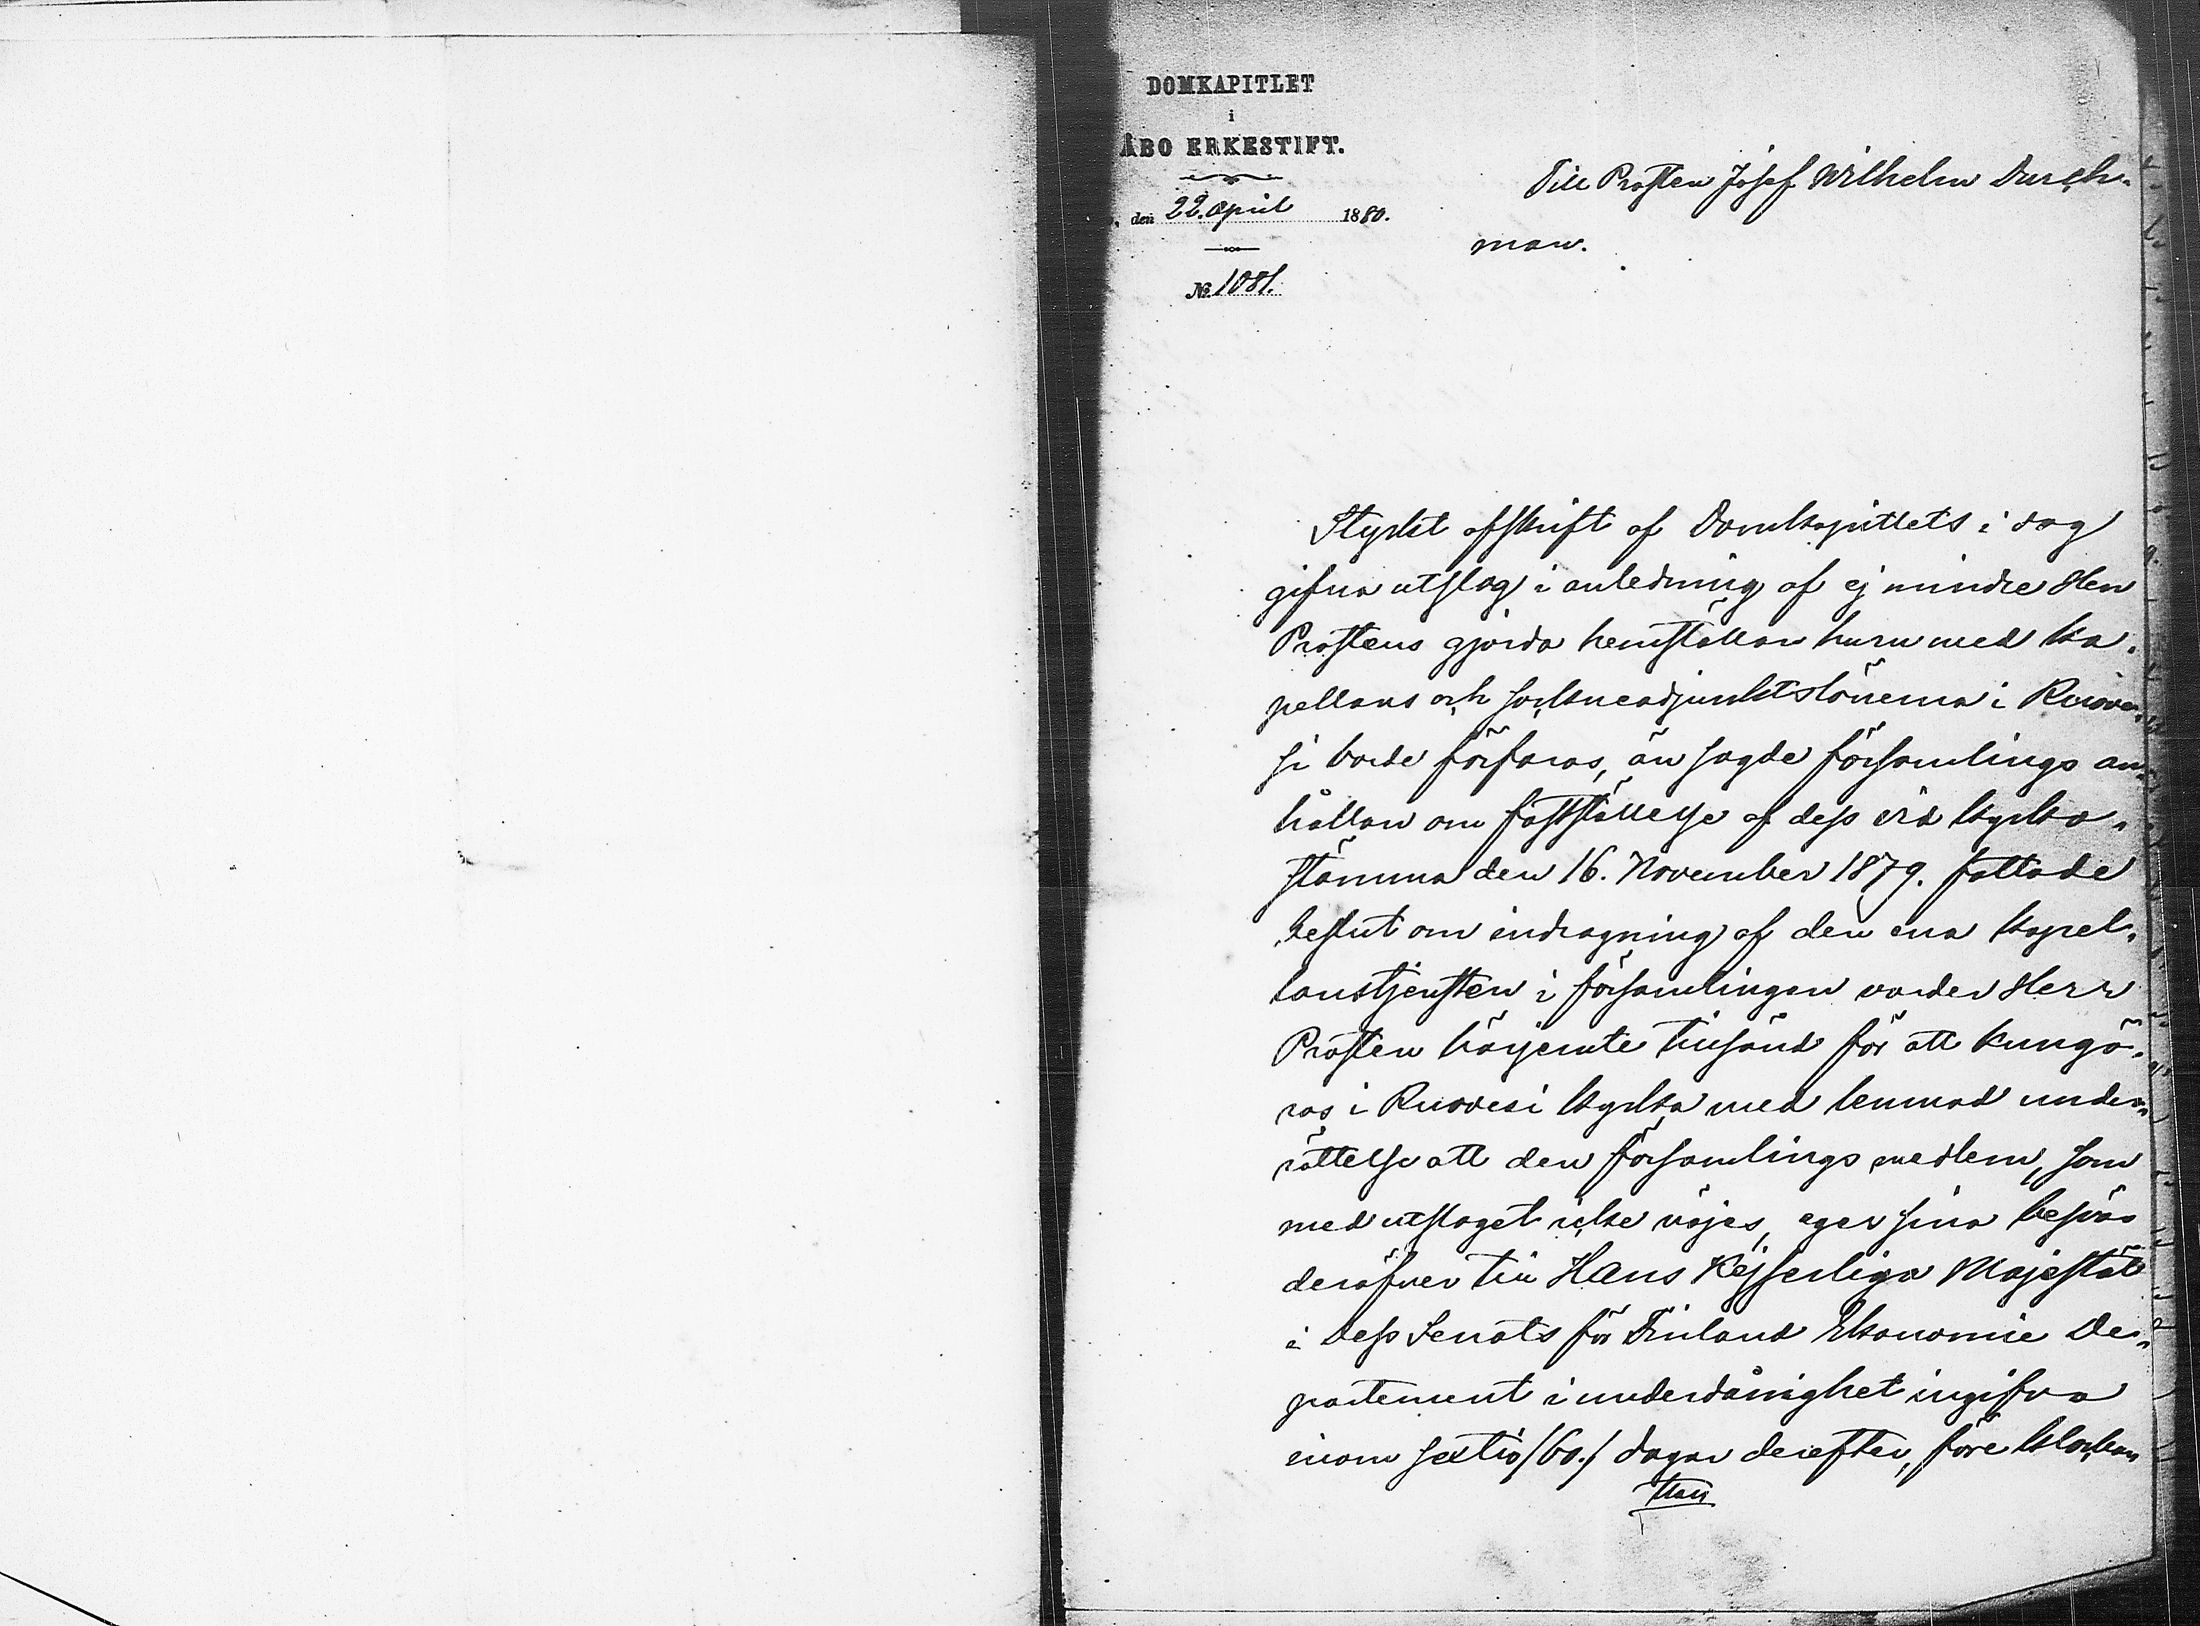 DOMKAPITLET
i
ÅBO ERKESTIFT.
, den 22. April 1880.
№ 1081.
Till Prosten Josef Wilhelm Durch-
man.
Styckt afskrift af Domkapitlets i dag
gifna utslag i anledning af ej mindre Herr
Prostens gjorda hemställan huru med ka-
pellans och sockneadjunktslönerna i Ruove-
si borde förfaras, än sagde församlings an-
hållan om fastställelse af dess vid kyrko-
stämma den 16. November 1879. fattade
beslut om indragning af den ena kapel-
lanstjensten i församlingen varder Herr
Prosten härjemte tillsänd för att kungö-
ras i Ruovesi kyrka med lemnad under-
rättelse att den församlings medlem, som
med utslaget icke nöjes, eger sina besvär
deröfver till Hans Kejserliga Majestät
i Dess Senats för Finland Ekonomie De-
partement i underdånighet ingifva
inom sextio /60./ dagar derefter, före klockan